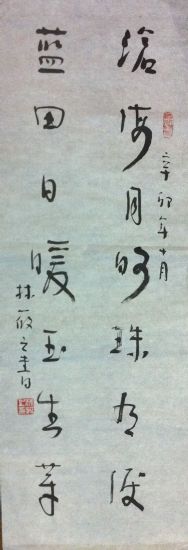 辛卯年十月
滄海月明珠有淚
藍田日暖玉生
林筱之書